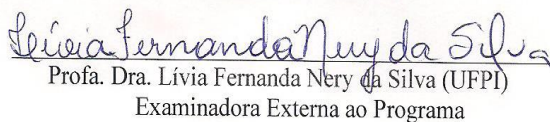 Lívia Fernanda Nery da Silva
Profa. Dra. Lívia Fernanda Nery da Silva (UFPI)
Examinadora Externa ao Programa